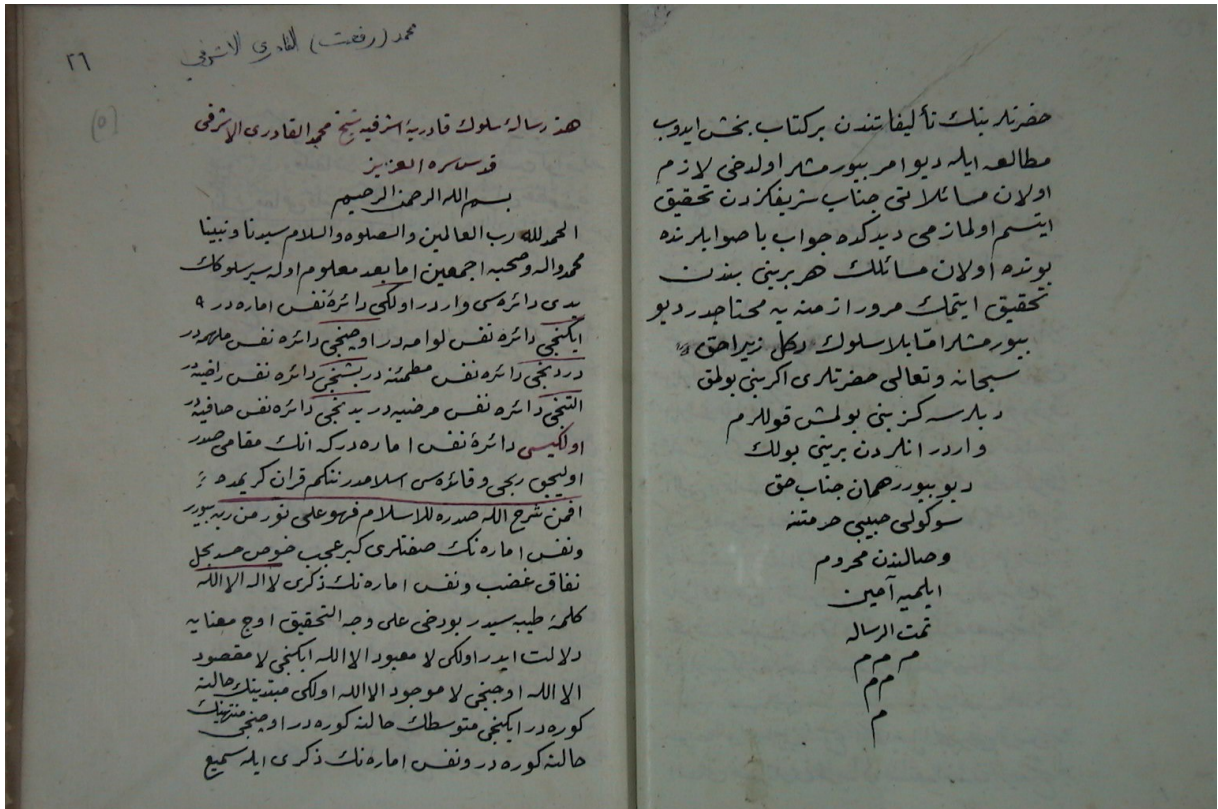 حضرتلرینك تألیفاتندن بر كتاب بخش ایدوب
مطالعه ایله دیو امر بیورمشلر اولدخی لازم
اولان مسائلاتی جناب شریفكزدن تحقیق
ایتسم اولمازمی دیدكده جواب باصوابلرنده
بونده اولان مسائلك هر برینی بندن
تحقیق ایتمك مرور ازمنه یه محتاجدر دیو
بیورمشلر سلوك دكل زیرا حق
سبحانه وتعالی حضرتلری اكر بنی بولمق
دیلرسه كز بنی بولمش قوللرم
واردر انلردن برینی بولك
دیو بیورر همان جناب حق
سوكولی حبیبی حرمتنه
وصالندن محروم
ایلمیه آمین
تمت الرساله
م م م
م م
م
محمد (رفعت) القادری الاشرفی
٢٦
(٥)
هذ رسالهٔ سلوك قادریهٔ اشرفیه شیخ محمد القادری الاشرفی
قدس سره العزیز
بسم الله الرحمن الرحیم
الحمدلله رب العالمین والصلوه والسلام سیدنا ونبینا
محمد واله وصحبه اجمعین اما بعد معلوم اوله سیر سلوكك
یدی دائره سی واردر اولكی دائرهٔ نفس اماره در ٩
ایكنجی دائره نفس لوامه در اوچنجی دائره نفس ملهمه در
دردنجی دائره نفس مطمئنه در بشنجی دائره نفس راضیه در
التنجی دائره نفس مرضیه در یدنجی دائره نفس صافیه در
اولكیسی دائرهٔ نفس اماره در كه انك مقامی صدر
اولیجق ربجی وقائره سی اسلامدر نتكم قران كریمده
افمن شرح الله صدره للاسلام فهو علی نور من ربه بیورر
ونفس اماره نك صفتلری كبر عجب حرص حسد بخل
نفاق غضب ونفس اماره نك ذكری لا اله الا الله
كلمهٔ طیبه سیدر بودخی علی وجه التحقیق اوج معنایه
دلالت ایدر اولكی لا معبود الا الله ایكنجی لا مقصود
الا الله اوجنجی لا موجود الا الله اولكی مبتدینك حالنه
كوره در ایكنجی متوسطك حالنه كوره در اوچنجی منتهینك
حالنه كوره در ونفس اماره نك ذكری ایله سمیع